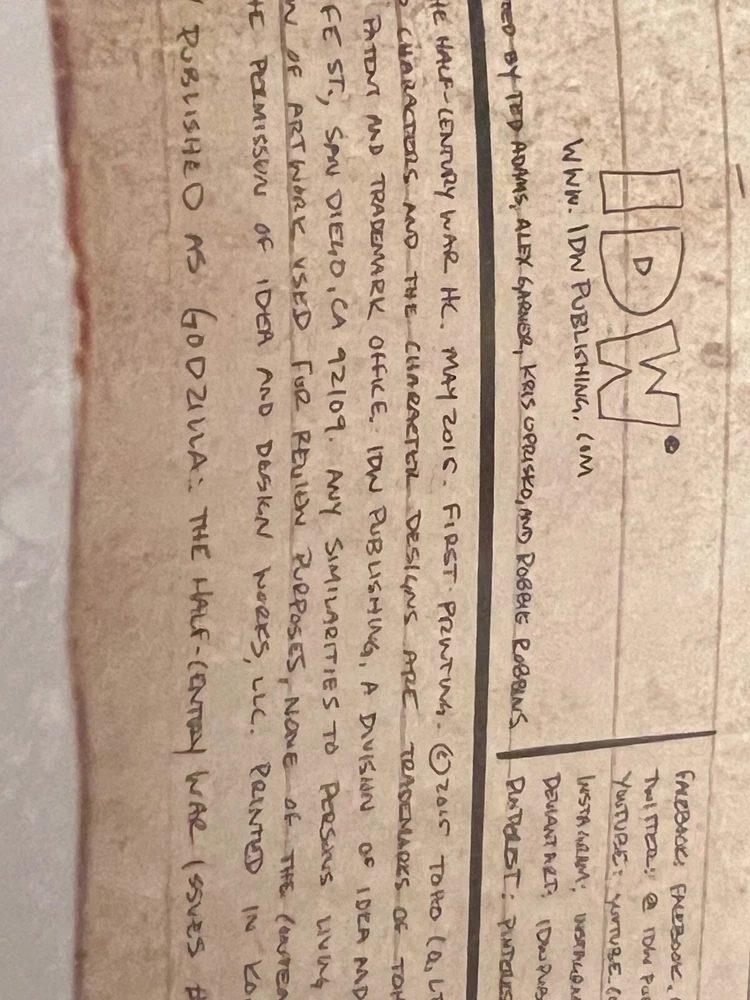 IDW
WWW. IDW PUBLISHING. COM
TED BY TED ADAMS, ALEX GARNER, KRIS OPRISKO, AND ROBBIE ROBBINS
FACEBOOK: FACEBOOK.
TWITTER: @ IDW PU
YOUTUBE: YOUTUBE.CO
INSTAGRAM: INSTAGRAM
DEVIANTART: IDWPUB
PINTEREST: PINTERES
HE HALF-CENTURY WAR HC. MAY 2015. FIRST PRINTING. © 2015 TOHO CO., LT
D CHARACTERS AND THE CHARACTER DESIGNS ARE TRADEMARKS OF TOH
PATENT AND TRADEMARK OFFICE. IDW PUBLISHING, A DIVISION OF IDEA AND
FE ST., SAN DIEGO, CA 92109. ANY SIMILARITIES TO PERSONS LIVING
N OF ARTWORK USED FOR REVIEW PURPOSES, NONE OF THE CONTEN
HE PERMISSION OF IDEA AND DESIGN WORKS, LLC. PRINTED IN KO
Y PUBLISHED AS GODZILLA: THE HALF-CENTURY WAR ISSUES #